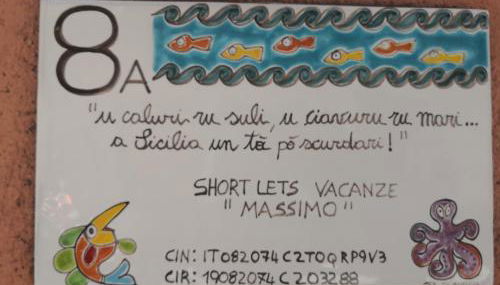 8A
"u caluri ru suli, u ciavuru ru mari...
a Sicilia un tā pō scurdari!"
SHORT LETS VACANZE
"MASSIMO"
CIN: IT082074C2TOQRP9V3
CIR: 19082074C203288